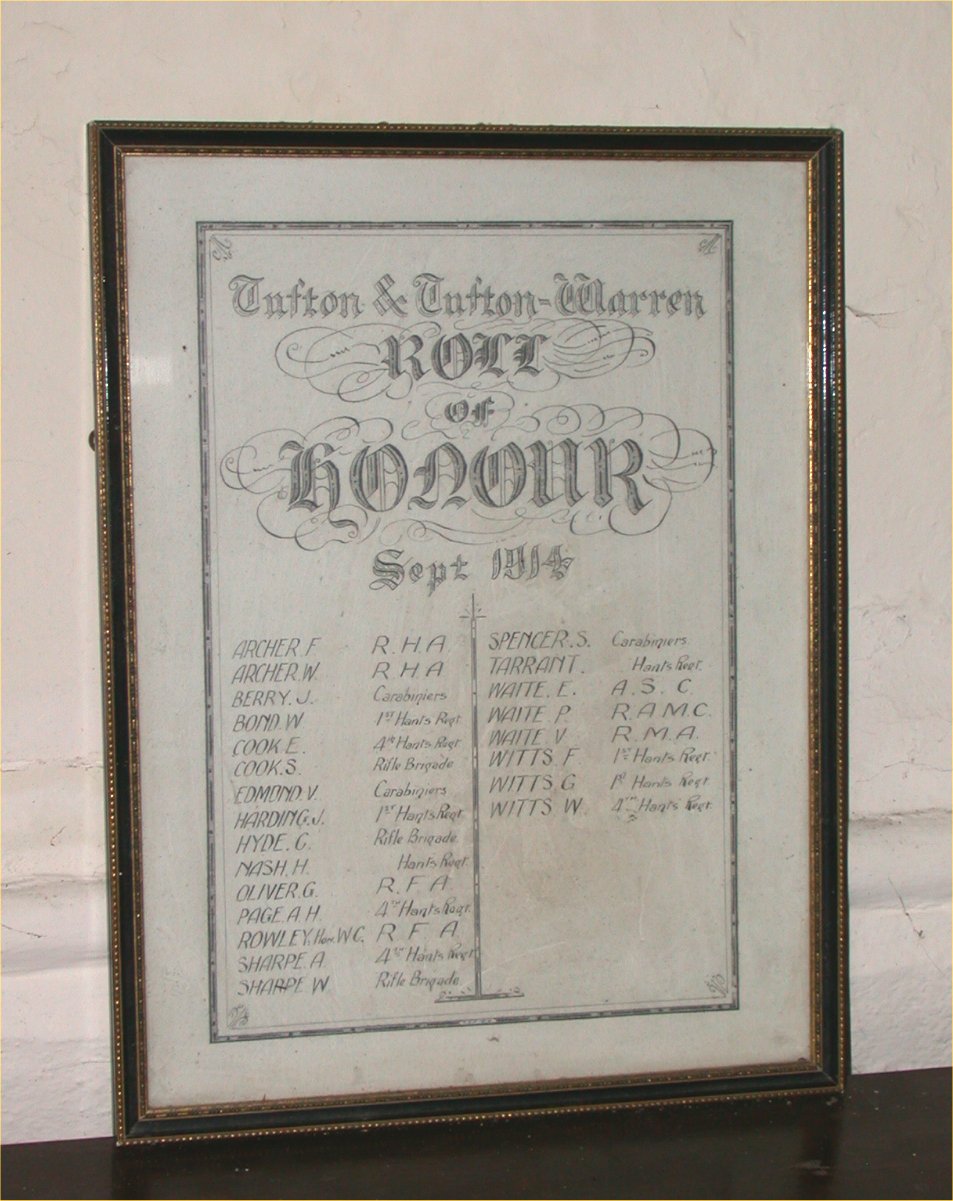 Tufton & Tufton-Warren
ROLL
OF
HONOUR
Sept 1914
ARCHER. F R. H. A.
ARCHER. W. R H A
BERRY. J. Carabiniers
BOND. W 1st Hants Regt
COOK. E. 4th Hants Regt
COOK. S. Rifle Brigade
EDMOND. V. Carabiniers
HARDING. J. 1st Hants Regt
HYDE. G. Rifle Brigade.
NASH. H. Hants Regt.
OLIVER. G. R. F. A.
PAGE. A. H. 4th Hants Regt.
ROWLEY. Hon. W. C. R. F. A.
SHARPE. A. 4th Hants Regt
SHARPE W Rifle Brigade.
SPENCER. S. Carabiniers.
TARRANT. Hants Regt.
WAITE. E. A. S. C.
WAITE P. R. A. M. C.
WAITE V R. M. A.
WITTS. F. 1st Hants Regt.
WITTS G 1st Hants Regt.
WITTS W. 4th Hants Regt.